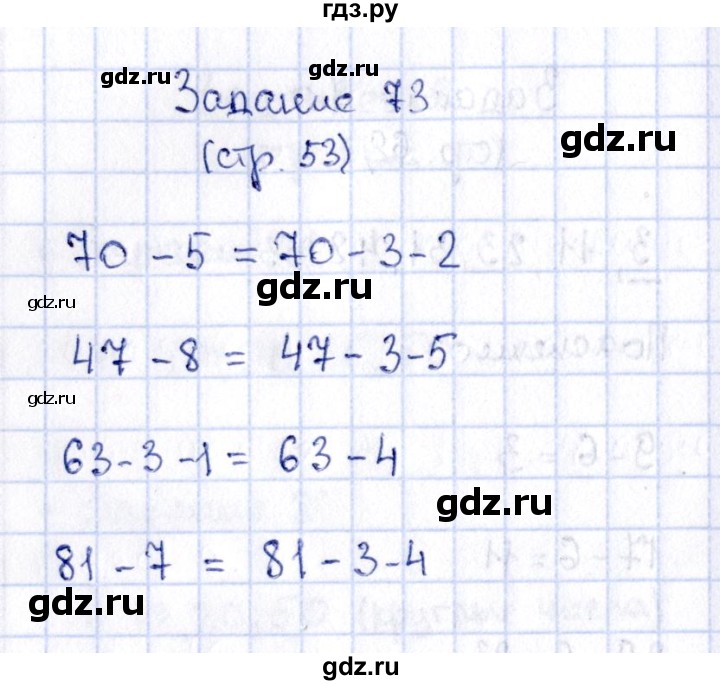 гдз.ру
gdz.ru
gdz.ru
Задание 73
gdz.ru
(стр. 53)
70 - 5 = 70 - 3 - 2
gdz.ru
gdz.ru
47 - 8 = 47 - 3 - 5
gdz.ru
63 - 3 - 1 = 63 - 4
gdz.ru
81 - 7 = 81 - 3 - 4
gdz.ru
gdz.ru
gdz.ru